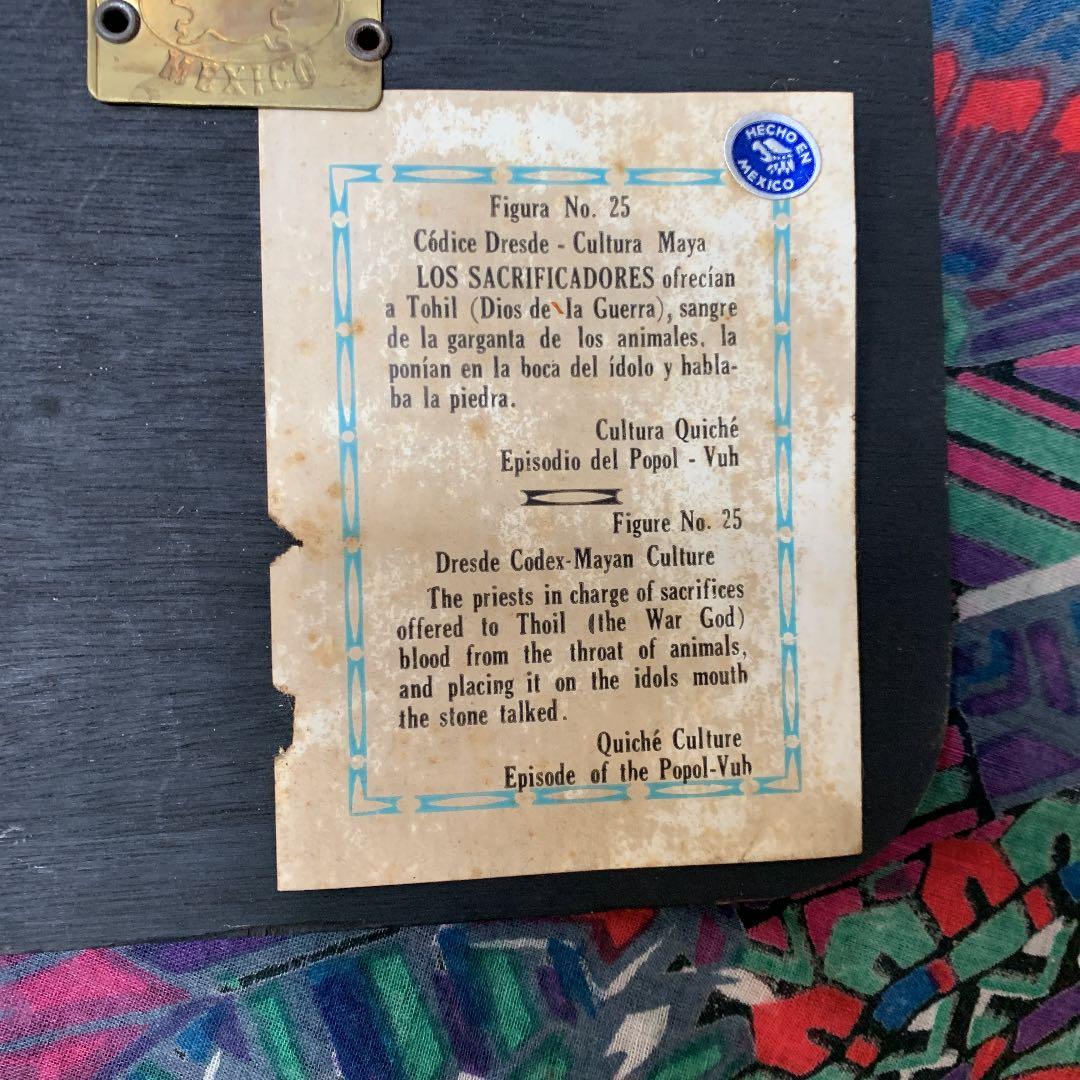 MEXICO
HECHO EN
MEXICO
Figura No. 25
Códice Dresde - Cultura Maya
LOS SACRIFICADORES ofrecían
a Tohil (Dios de la Guerra), sangre
de la garganta de los animales. la
ponían en la boca del ídolo y habla-
ba la piedra.
Cultura Quiché
Episodio del Popol - Vuh
Figure No. 25
Dresde Codex-Mayan Culture
The priests in charge of sacrifices
offered to Thoil (the War God)
blood from the throat of animals,
and placing it on the idols mouth
the stone talked.
Quiché Culture
Episode of the Popol-Vuh